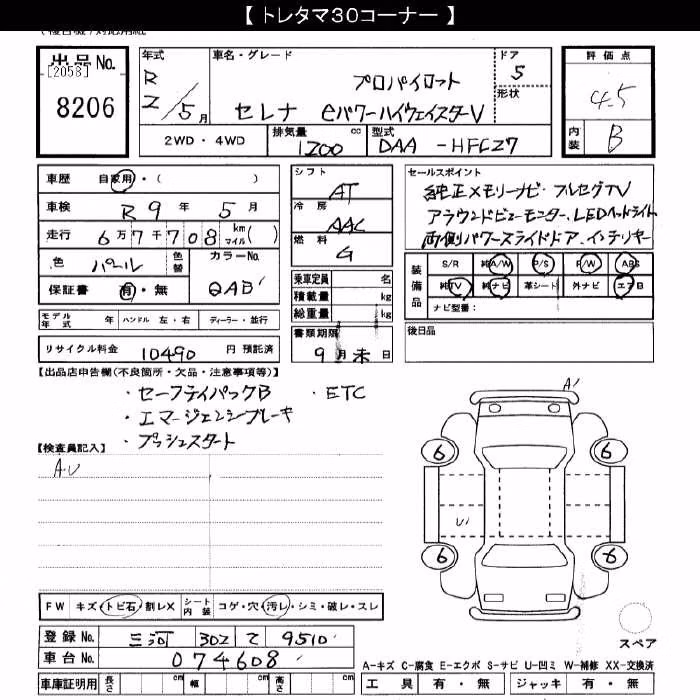 【 トレタマ30コーナー 】
出品No.
[2058]
8206
年式
R
2/5月
車名・グレード
プロパイロット
セレナ eパワーハイウェイスターV
ドア
5
形状
2WD・4WD
排気量
1200
cc
型式
DAA -HFC27
評価点
4.5
内装
B
車歴
自家用・( )
車検
R 9 年 5 月
走行
6万7千708
km
マイル
( )
色
パール
色替
カラーNo.
QAB
保証書
有・無
シフト
AT
冷房
AAC
燃料
G
乗車定員
名
積載量
kg
総重量
kg
書類期限
9月末日
セールスポイント
純正メモリーナビ・フルセグTV
アラウンドビューモニター、LEDヘッドライト
両側パワースライドドア、インテリキー
装備品
S/R 純A/W P/S P/W ABS
純TV 純ナビ 革シート 外ナビ エアB
ナビ型番:
後日品
モデル年式
年
ハンドル
左・右
ディーラー・並行
リサイクル料金
10490
円 預託済
【出品店申告欄(不良箇所・欠品・注意事項等)】
・セーフティパックB ・ETC
・エマージェンシーブレーキ
・プッシュスタート
【検査員記入】
AU
A1
6
6
U1
6
6
スペア
FW
キズ・トビ石・割レX
シート内装
コゲ・穴・汚レ・シミ・破レ・スレ
登録No.
三河 302 て 9510
車台No.
074608
車庫証明用
長さ
cm
幅
cm
高さ
cm
A-キズ C-腐食 E-エクボ S-サビ U-凹ミ W-補修 XX-交換済
工具
有・無
ジャッキ
有・無